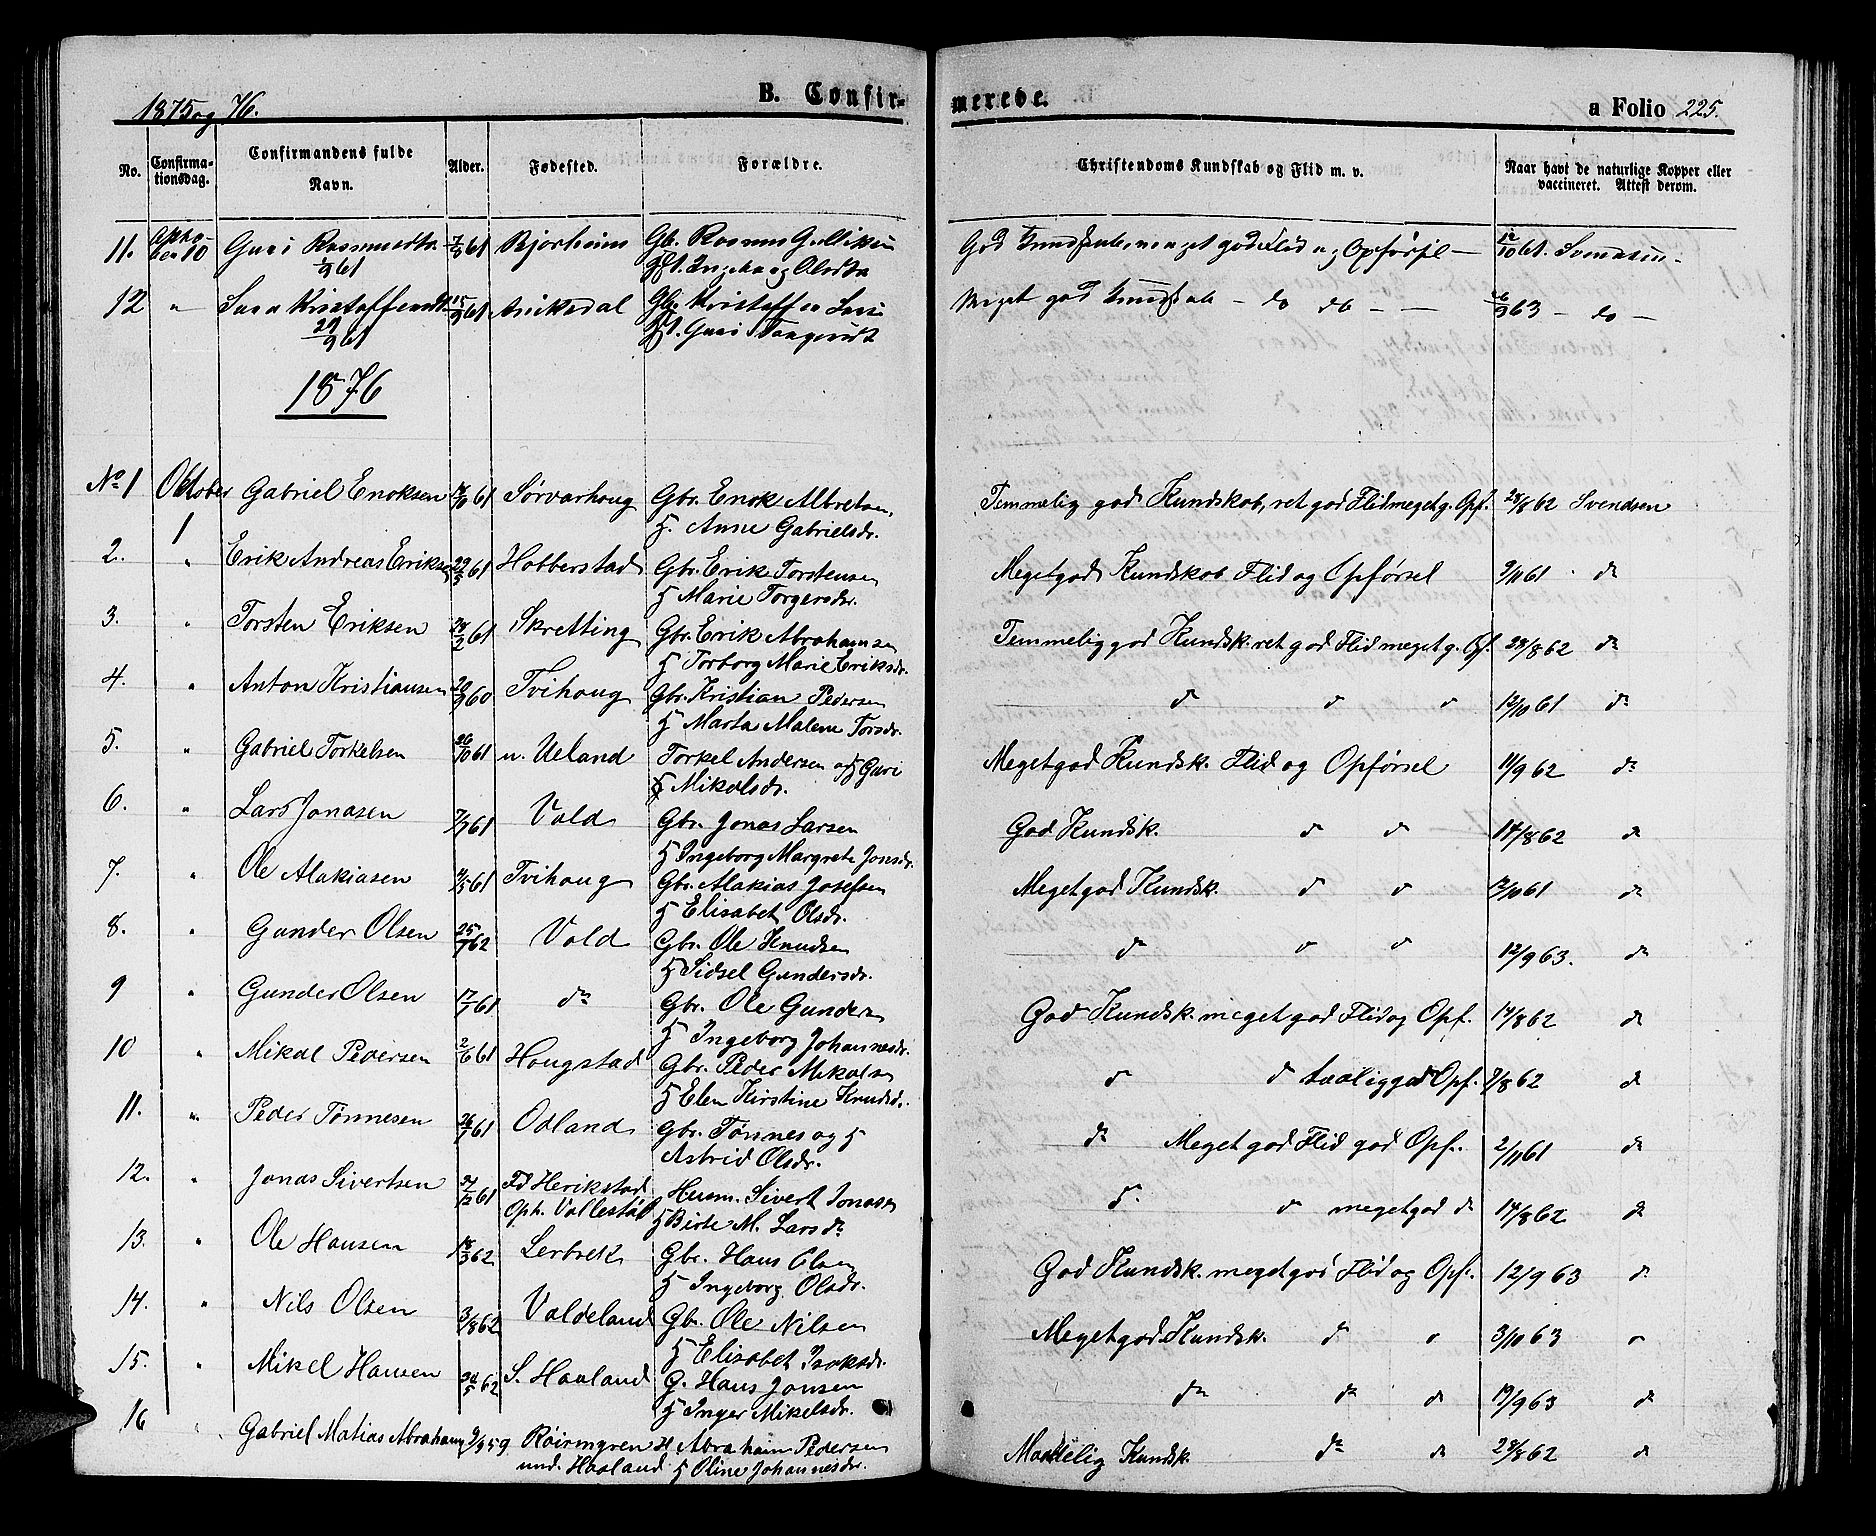 1875 og 76.
B. Confir-
merede.
a Folio 225.
No.
Confirma-
tionsdag.
Confirmandens fulde
Navn.
Alder.
Fødested.
Forældre.
Christendoms Kundskab og Flid m. v.
Naar havt de naturlige Kopper eller
vaccineret. Attest derom.
11. 10 Guri Rasmusdta 61 Bjorheim Gb. Rasmus
61
Ingeborg Olsdta
God Kundskab, meget god Flid og Opførsel — 12/10 61. Svendsen
12 " 15/9 61 Gb. Kristoffer Lars
29/9 61
Hst. Guri
Meget god Kundskab — do do — — 63 — do —
1876
No 1 Oktober Gabriel Enoksen 61 Sørvarhoug Gbr. Enok Albretsen,
1
H. Anne Gabrielsdr.
Temmelig god Kundskab, ret god Flid meget g. Opf. 28/8 62 Svendsen
2. " Erik Andreas Eriksen 61 Hobberstad Gbr. Erik Torstensen
H Marie Torgersdr.
Meget god Kundskab Flid og Opførsel 9/11 61 do
3. " Torsten Eriksen 61 Skretting Gbr. Erik Abrahamsen
H Torborg Marie Eriksdr.
Temmelig god Kundsk. ret god Flid meget g. Opf. 28/8 62 do
4. " Anton Kristiansen 60 Tvihoug Gbr. Kristian Pedersen
H Marta Malene Torsdr.
do do do 12/10 61 do
5. " Gabriel Torkelsen 26/10 61 n. Ueland Torkel Andersen og H Guri
Mikalsdr.
Meget god Kundsk. Flid og Opførsel 11/9 62 do
6. " Lars Jonasen 7/7 61 Vold Gbr. Jonas Larsen
H Ingeborg Margrete Jonsdr.
God Kundsk. do do 14/8 62 do
7. " Ole Alakiasen 61 Tvihoug Gbr. Alakias Josefsen
H Elisabet Olsdr.
Meget god Kundsk. do do 61 do
8. " Gunder Olsen 25/7 62 Vold Gbr. Ole Knudsen
H Sidsel Gundersdr.
do do do 12/9 63. do
9 " Gunder Olsen 17/7 61 do Gbr. Ole Gunders
H Ingeborg Johannesdr.
God Kundsk. meget god Flid og Opf. 14/8 62 do
10 " Mikal Pedersen 2/6 61 Hougstad Gbr. Peder Mikals
H Elen Kirstine Knudsd.
do do taalig god Opf. 62 do
11. " Peder Tønnesen 26/7 61 Odland Gbr. Tønnes og H
Astrid Olsdr.
do Meget god Flid god Opf. 2/11 61 do
12. " Jonas Sivertsen 61 Fd Herikstad Husm. Sivert Jonasen
Oph. Vallestad H Birte M. Larsdr
do do meget god do 14/8 62 do
13. " Ole Hansen 18/3 62 Lerbrek Gbr. Hans Olsen
H Ingeborg Olsdr.
God Kundsk. meget god Flid og Opf. 12/9 63 do
14. " Nils Olsen 3/8 62 Valdeland Gbr. Ole Nilsen
H Elisabet Isaksdr.
Meget god Kundsk. do do 3/10 63 do
15. " Mikel Hansen 62 S. Haaland G. Hans Jonsen
H Inger Mikelsdr.
do do do 19/9 63 do
16 " Gabriel Matias Abraham 59 Røirmyren H Abraham Pedersen
und. Haaland H Oline Johannesdr.
Maadelig Kundsk. do do 28/8 62 do